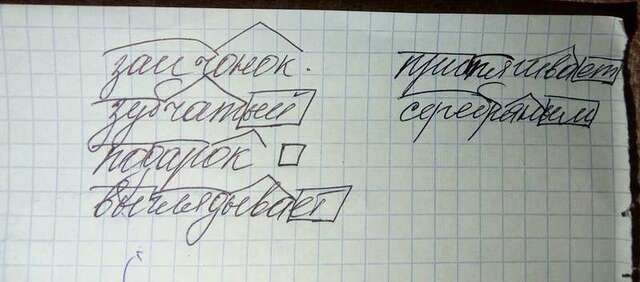 зайчонок.
зубчатый
подарок
выглядывает
пристягивает
серебряным